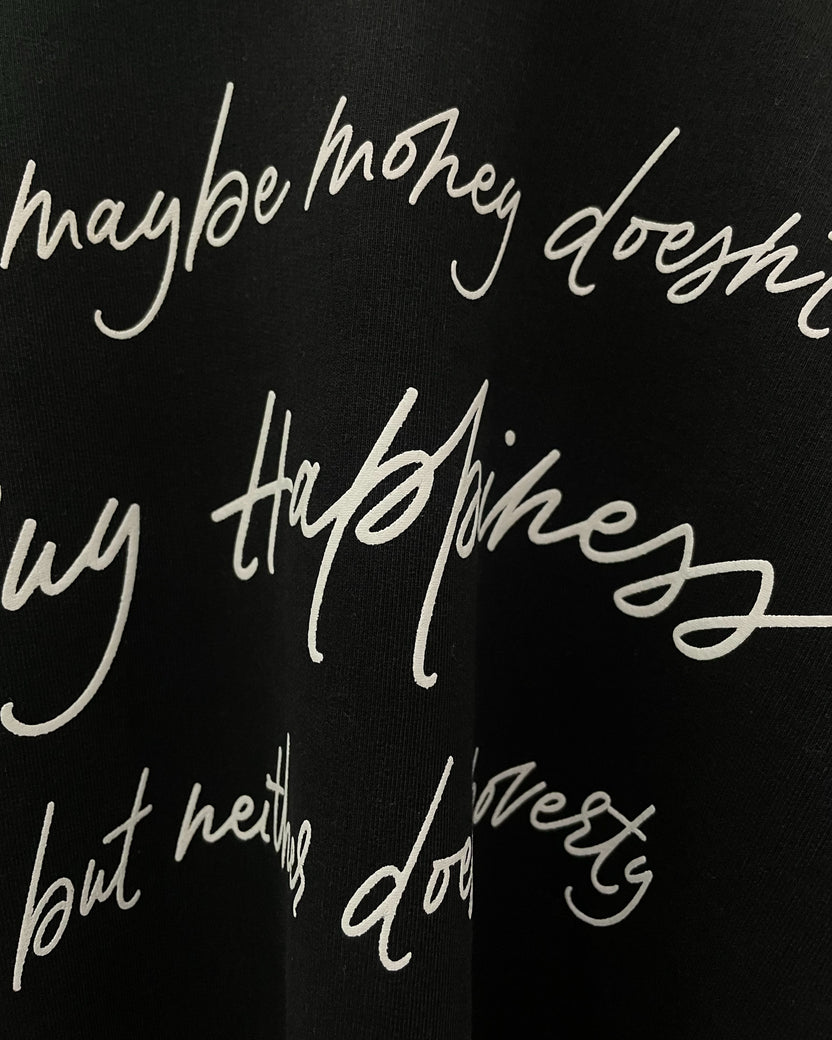 maybe money doesn't
buy Happiness
but neither does poverty